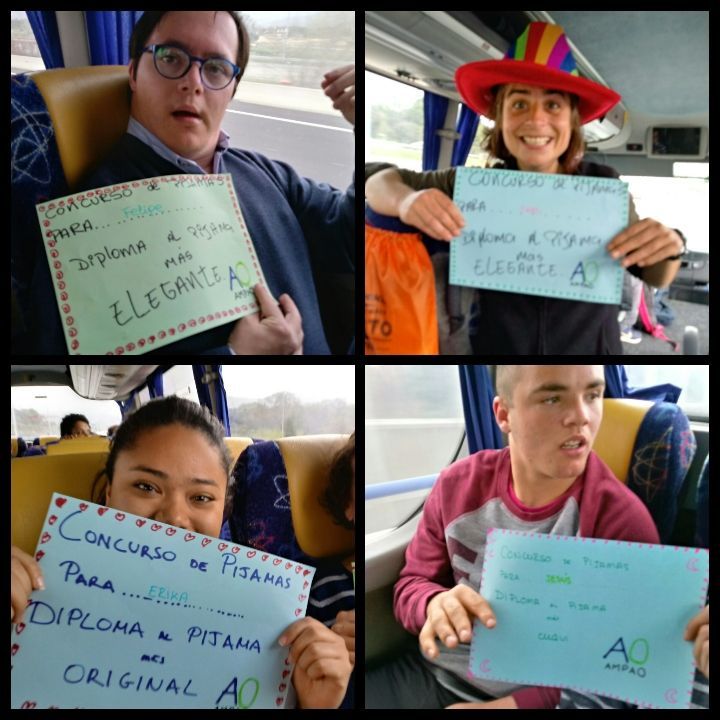 CONCURSO DE PIJAMAS
PARA... Felipe
DIPLOMA AL PIJAMA
MAS
ELEGANTE AO
AMPAO
CONCURSO DE PIJAMAS
PARA...
DIPLOMA AL PIJAMA
MAS
ELEGANTE. AO
AMPAO
70
CONCURSO DE PIJAMAS
PARA... ERIKA
DIPLOMA AL PIJAMA
MÁS
ORIGINAL AO
CONCURSO DE PIJAMAS
PARA... JESÚS
DIPLOMA AL PIJAMA
CUQUI
AO
AMPAO